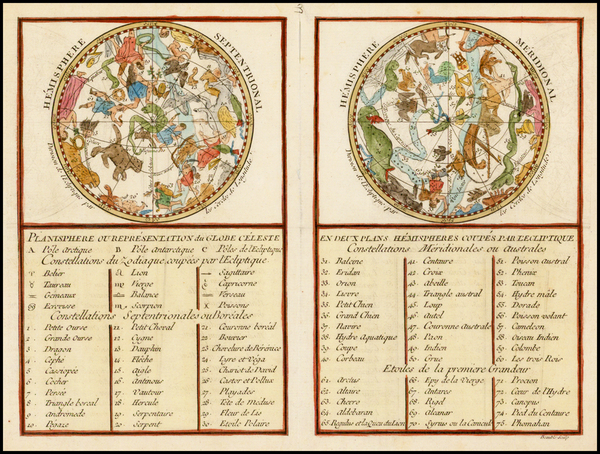 3
HÉMISPHERE SEPTENTRIONAL
Division de l'Ecliptique par les Cercles de Longitude
HÉMISPHERE MERIDIONAL
Division de l'Ecliptique par les Cercles de Longitude
PLANISPHERE OU REPRÉSENTATION du GLOBE CÉLESTE
A Pôle arctique B Pôle antarctique C Pôles de l'Ecliptique
Constellations du Zodiaque, coupées par l'Ecliptique
♈ Belier ♌ Lion ♐ Sagittaire
♉ Taureau ♍ Vierge ♑ Capricorne
♊ Gémeaux ♎ Balance ♒ Verseau
♋ Ecrevisse ♏ Scorpion ♓ Poissons
Constellations Septentrionales ou Boréales
1. Petite Ourse 11. Petit Cheval 21. Couronne boréal
2. Grande Ourse 12. Cygne 22. Bouvier
3. Dragon 13. Dauphin 23. Chevelure de Bérénice
4. Cephé 14. Flêche 24. Lyre et Véga
5. Cassiopée 15. Aigle 25. Chariot de David
6. Cocher 16. Antinous 26. Castor et Pollux
7. Persée 17. Vautour 27. Pleyades
8. Triangle boreal 18. Hercule 28. Tête de Meduse
9. Andromède 19. Serpentaire 29. Fleur de Lis
10. Pégaze 20. Serpent 30. Etoile Polaire
EN DEUX PLANS HÉMISPHERES COUPÉS PAR L'ECLIPTIQUE
Constellations Méridionales ou Australes
31. Baleine 41. Centaure 51. Poisson austral
32. Eridan 42. Croix 52. Phenix
33. Orion 43. Abeille 53. Toucan
34. Lievre 44. Triangle austral 54. Hydre mâle
35. Petit Chien 45. Loup 55. Dorade
36. Grand Chien 46. Autel 56. Poisson volant
37. Navire 47. Couronne australe 57. Cameleon
38. Hydre Aquatique 48. Paon 58. Oiseau Indien
39. Coupe 49. Indien 59. Colombe
40. Corbeau 50. Grue 60. Les trois Rois
Etoiles de la premiere Grandeur
61. Arctus 66. Epy de la Vierge 71. Procion
62. Altaire 67. Antares 72. Cœur de l'Hydre
63. Chevre 68. Rigel 73. Canopus
64. Aldebaran 69. Aleanar 74. Pied du Centaure
65. Regulus et la Queue du Lion 70. Syrius ou la Canicul 75. Phomahan